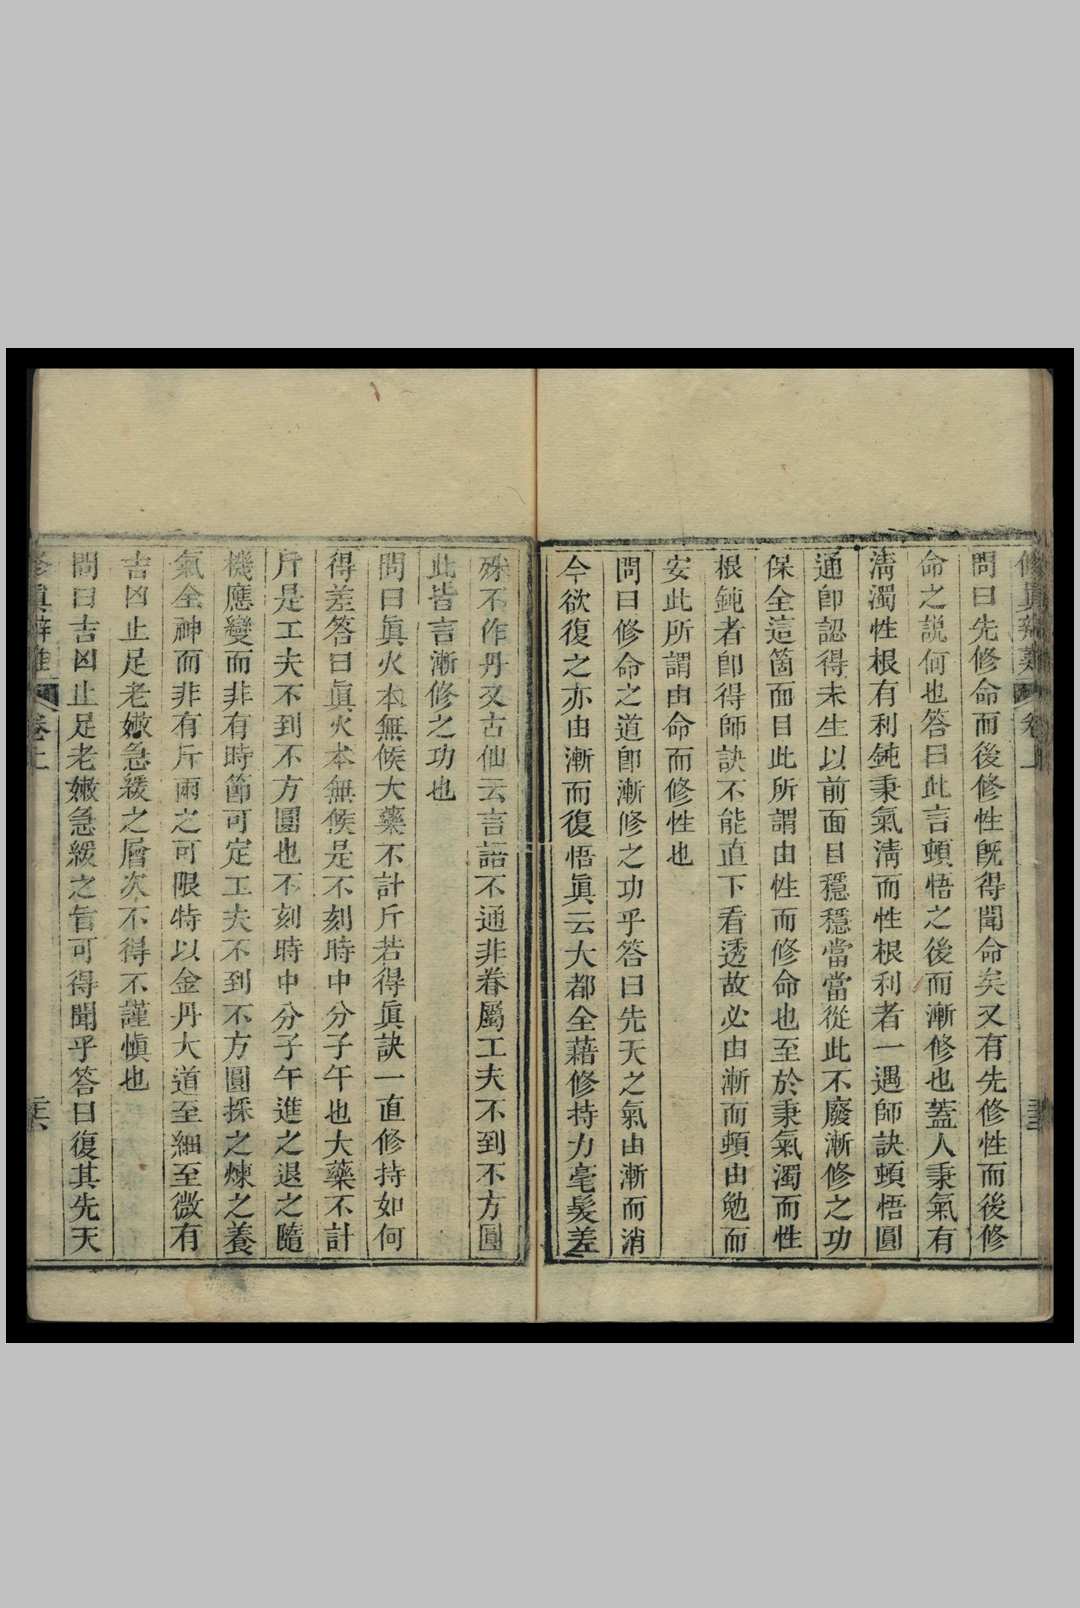 問曰先修命而後修性旣得聞命矣又有先修性而後修
命之說何也答曰此言頓悟之後而漸修也蓋人秉氣有
淸濁性根有利鈍秉氣淸而性根利者一遇師訣頓悟圓
通卽認得未生以前面目穩穩當當從此不廢漸修之功
保全這箇面目此所謂由性而修命也至於秉氣濁而性
根鈍者卽得師訣不能直下看透故必由漸而頓由勉而
安此所謂由命而修性也
問曰修命之道卽漸修之功乎答曰先天之氣由漸而消
今欲復之亦由漸而復悟眞云大都全藉修持力毫髮差
殊不作丹又古仙云言語不通非眷屬工夫不到不方圓
此皆言漸修之功也
問曰眞火本無候大藥不計斤若得眞訣一直修持如何
得差答曰眞火本無候是不刻時中分子午也大藥不計
斤是工夫不到不方圓也不刻時中分子午進之退之隨
機應變而非有時節可定工夫不到不方圓採之煉之養
氣全神而非有斤兩之可限特以金丹大道至細至微有
吉凶止足老嫩急緩之層次不得不謹愼也
問曰吉凶止足老嫩急緩之旨可得聞乎答曰復其先天
修眞辯難 卷上